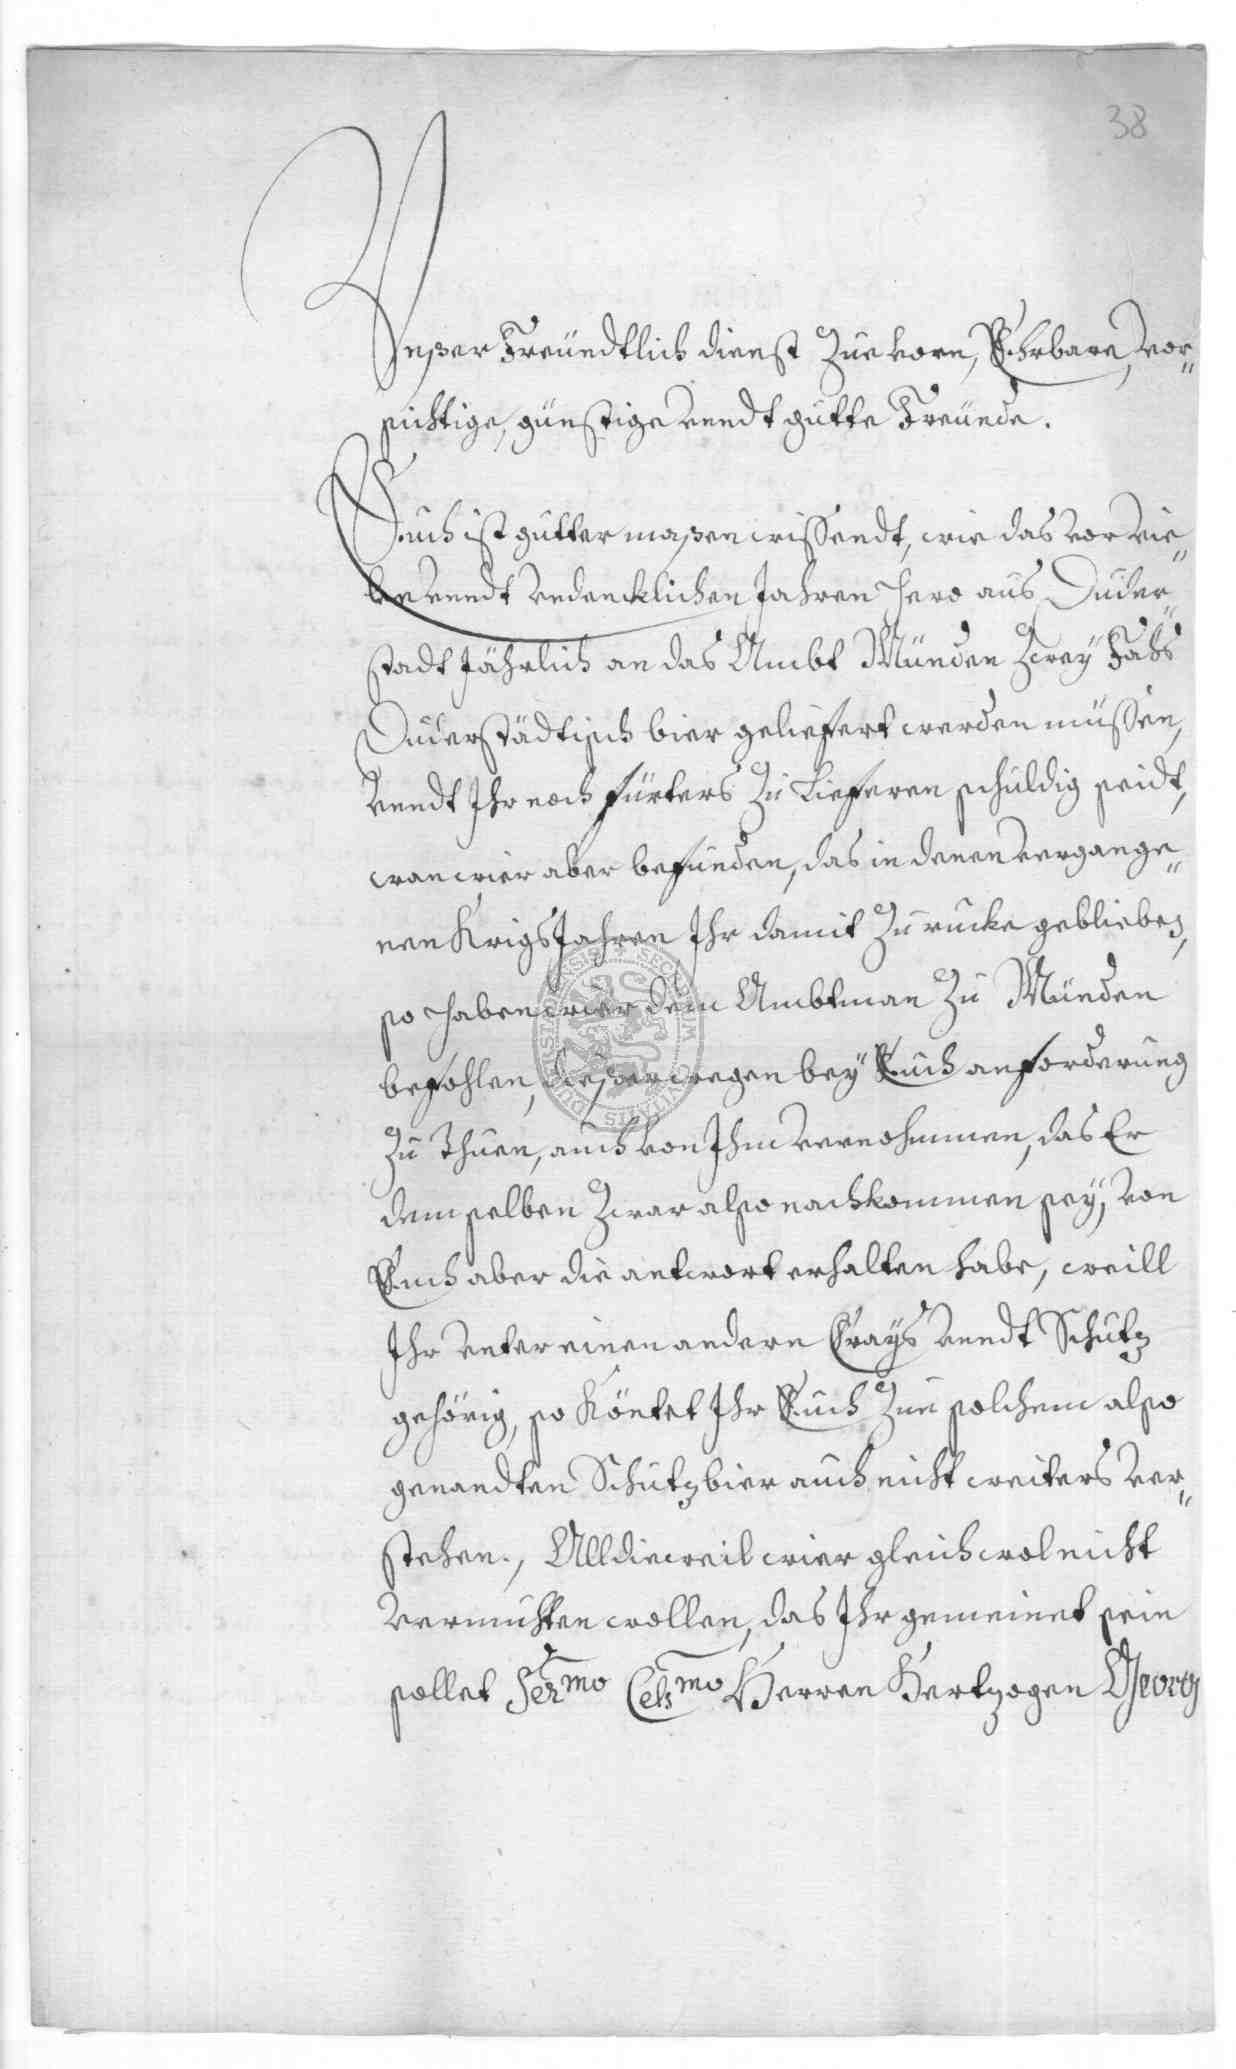 38
Unßer Freündtlich dienst Zue vorn, Ehrbare, vor-
sichtige, günstige vndt gutte Freünde.
Euch ist gutter maßen wissendt, wie das vor vie-
len vndt vndencklichen Jahren hero aus Duder-
stadt Jährlich an das Ambt Münden Zwey Faß
Duderstädtisch bier geliefert werden müssen,
vndt Ihr noch fürters Zu Lieferen schuldig seidt,
wan wier aber befunden, das in denen vergange-
nen Krigs Jahren Ihr damit Zu rucke geblieben,
so haben wier dem Ambtman Zu Münden
befohlen, dießerwegen bey Euch anforderung
Zu Thuen, auch von Ihm vernohmmen, das Er
demselben Zwar also nachkommen sey, von
Euch aber die antwort erhalten habe, weill
Ihr vnter einen andern Crayß vndt Schutz
gehörig, so Köntet Ihr Euch Zue solchem also
genandten Schutzbier auch nicht weiters ver-
stehen., Alldieweil wier gleichwol nicht
vermuhten wollen, das Ihr gemeinet sein
sollet Sermo Celsmo Herren Hertzogen Georg
SECRETUM CIVITATIS